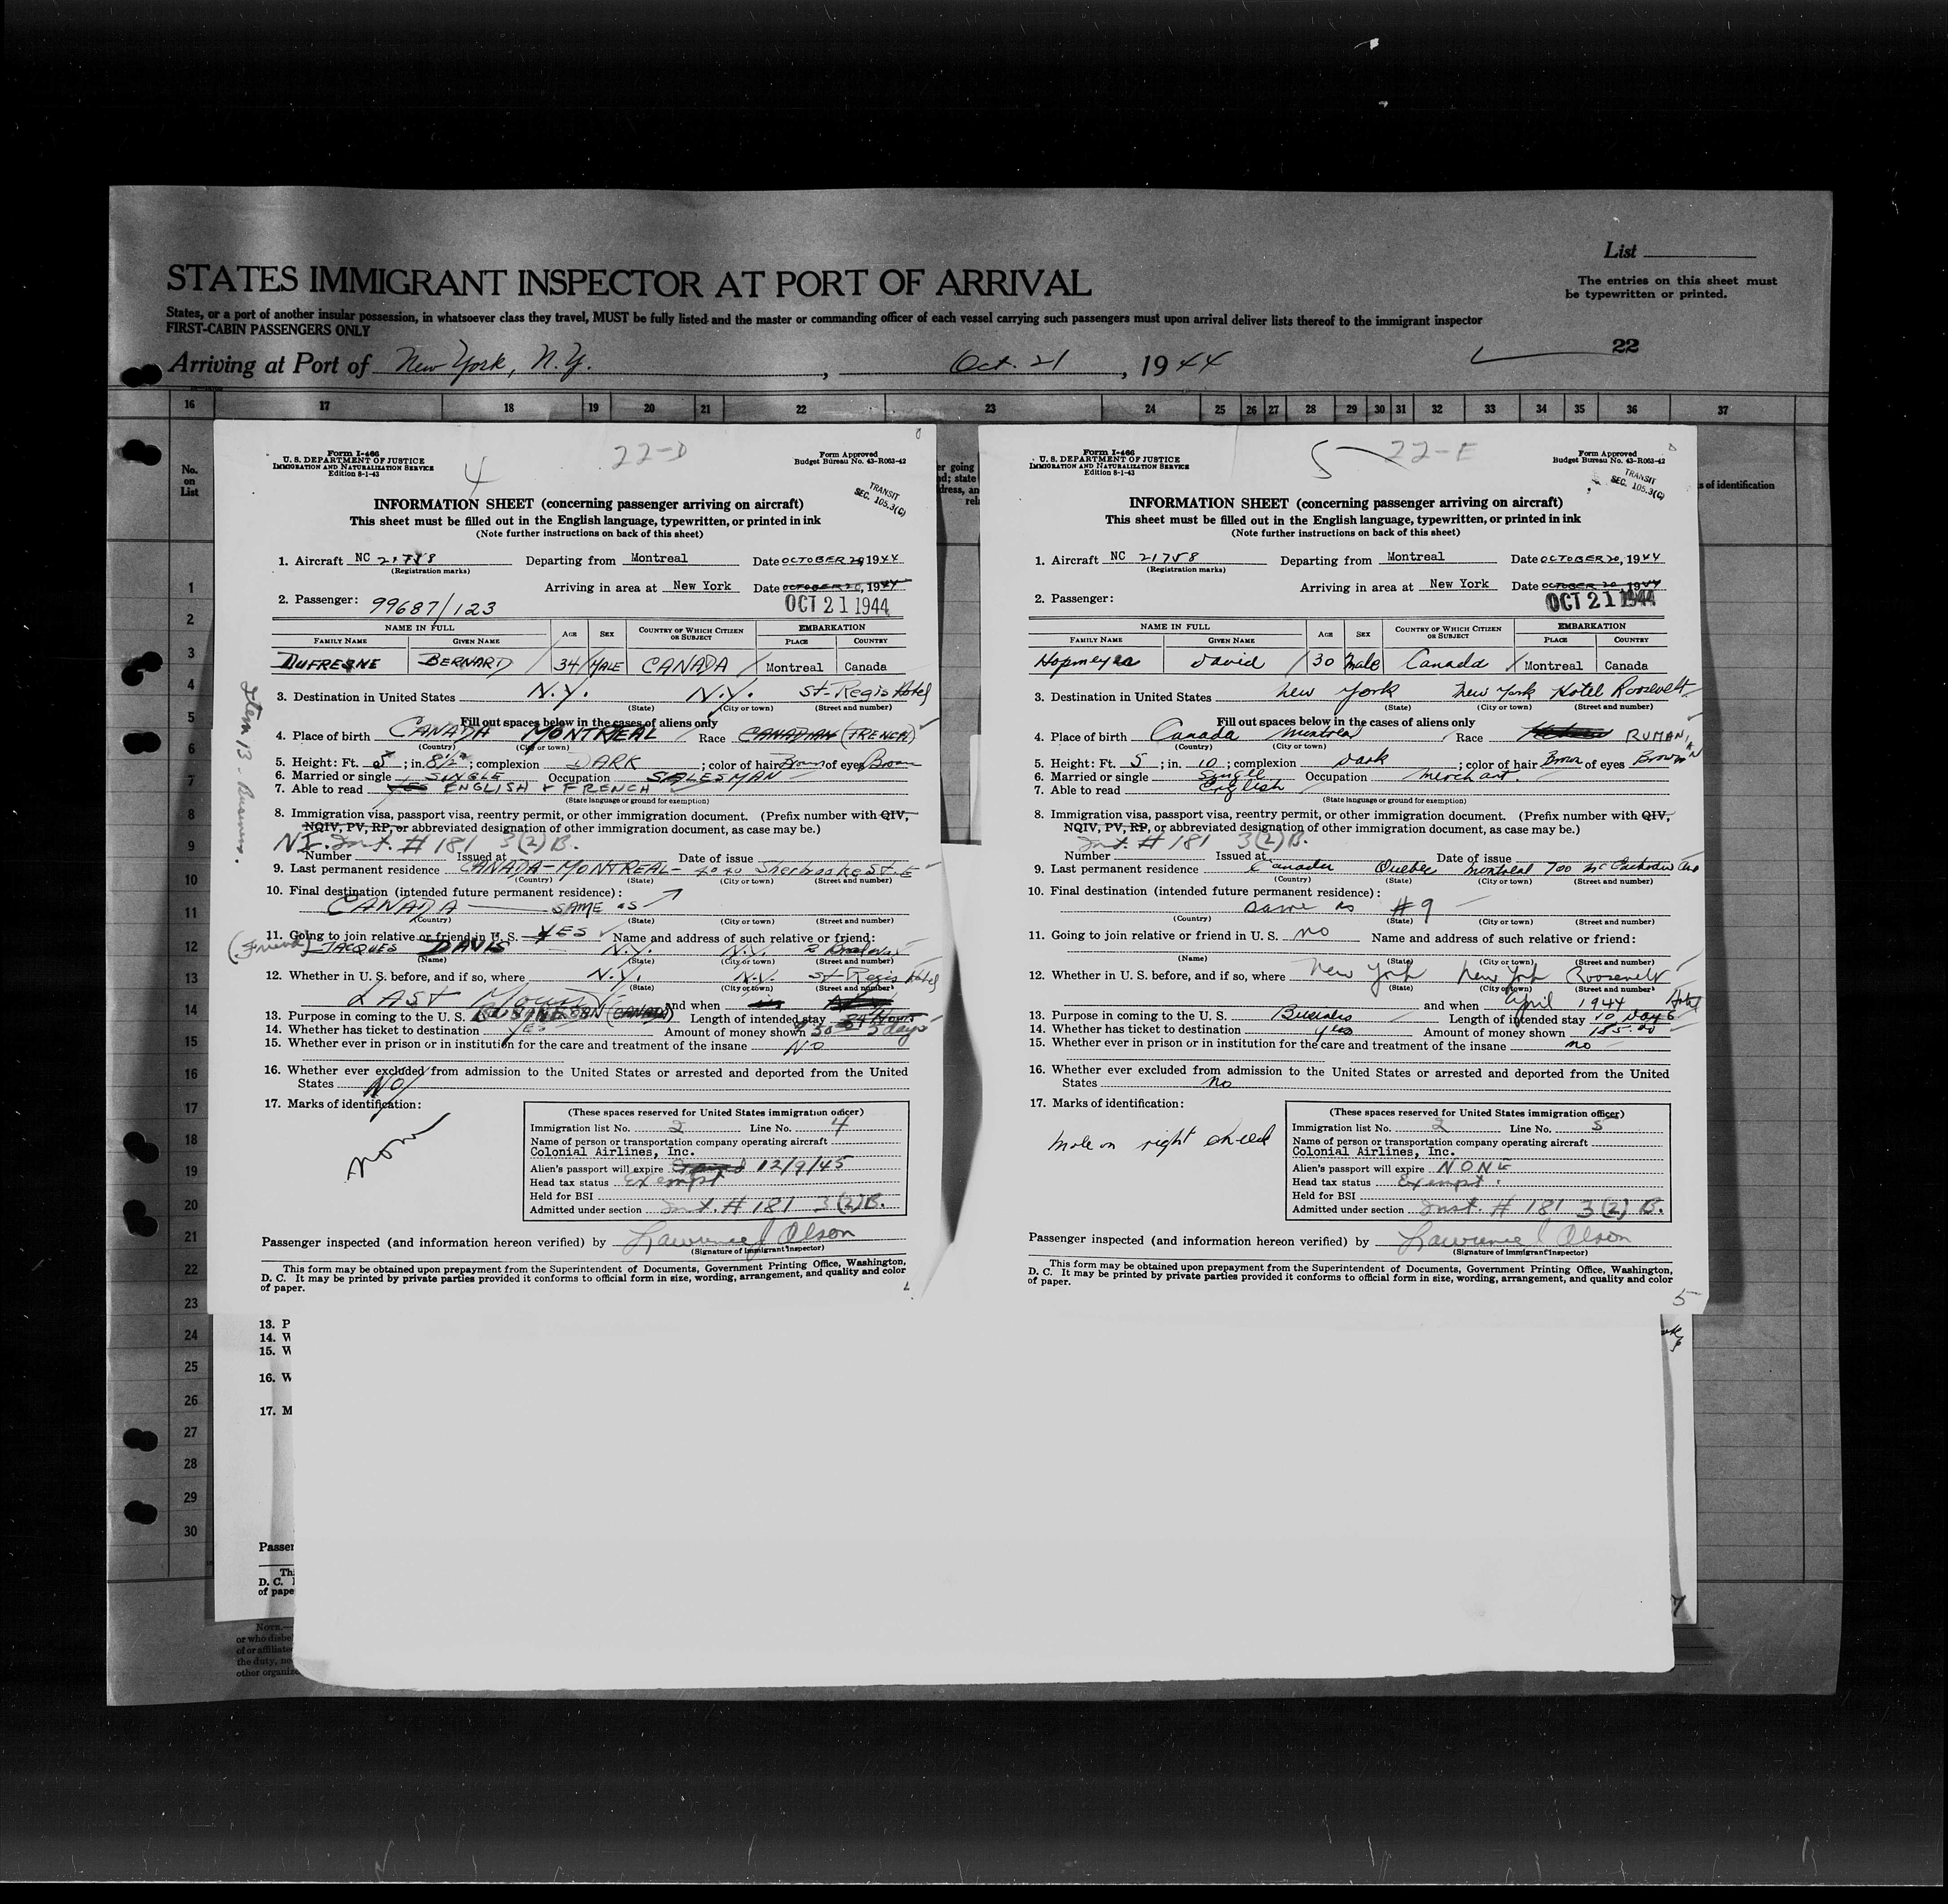 List
STATES IMMIGRANT INSPECTOR AT PORT OF ARRIVAL
The entries on this sheet must
be typewritten or printed.
States, or a port of another insular possession, in whatsoever class they travel, MUST be fully listed and the master or commanding officer of each vessel carrying such passengers must upon arrival deliver lists thereof to the immigrant inspector
FIRST-CABIN PASSENGERS ONLY
Arriving at Port of New York, N.Y. , Oct. 21 , 1944
22
16 17 18 19 20 21 22 23 24 25 26 27 28 29 30 31 32 33 34 35 36 37
No.
on
List
1
2
3
4
5
6
7
8
9
10
11
12
13
14
15
16
17
18
19
20
21
22
23
24
25
26
27
28
29
30
Form I-466
U. S. DEPARTMENT OF JUSTICE
IMMIGRATION AND NATURALIZATION SERVICE
Edition 8-1-43
4
22-D
Form Approved
Budget Bureau No. 43-R063-42
TRANSIT
SEC. 105.3(C)
INFORMATION SHEET (concerning passenger arriving on aircraft)
This sheet must be filled out in the English language, typewritten, or printed in ink
(Note further instructions on back of this sheet)
1. Aircraft NC 21758 Departing from Montreal Date OCTOBER 20, 1944
(Registration marks)
Arriving in area at New York Date OCTOBER 20, 1944
2. Passenger: 99687/123 OCT 21 1944
NAME IN FULL AGE SEX COUNTRY OF WHICH CITIZEN OR SUBJECT EMBARKATION
FAMILY NAME GIVEN NAME PLACE COUNTRY
DUFRESNE BERNARD 34 MALE CANADA Montreal Canada
3. Destination in United States N.Y. N.Y. St-Regis Hotel
(State) (City or town) (Street and number)
Fill out spaces below in the cases of aliens only
4. Place of birth CANADA MONTREAL Race CANADIAN (FRENCH)
(Country) (City or town)
5. Height: Ft. 5 ; in. 8½ ; complexion DARK ; color of hair Brown of eyes Brown
6. Married or single SINGLE Occupation SALESMAN
7. Able to read YES ENGLISH & FRENCH
(State language or ground for exemption)
8. Immigration visa, passport visa, reentry permit, or other immigration document. (Prefix number with QIV,
NQIV, PV, RP, or abbreviated designation of other immigration document, as case may be.)
Inst. # 181 3(2)B.
Number Issued at Date of issue
9. Last permanent residence CANADA-MONTREAL- Sherbrooke St. E
(Country) (State) (City or town) (Street and number)
10. Final destination (intended future permanent residence):
CANADA SAME AS
(Country) (State) (City or town) (Street and number)
11. Going to join relative or friend in U. S. YES Name and address of such relative or friend:
(Friend) JACQUES DAVIS N.Y. N.Y.
(Name) (State) (City or town) (Street and number)
12. Whether in U. S. before, and if so, where N.Y. N.Y. St Regis Hotel
(State) (City or town) (Street and number)
LAST and when
13. Purpose in coming to the U. S. (CANADA) Length of intended stay 24 Hours 5 days
14. Whether has ticket to destination YES Amount of money shown $50
15. Whether ever in prison or in institution for the care and treatment of the insane NO
16. Whether ever excluded from admission to the United States or arrested and deported from the United
States NO
17. Marks of identification:
none
(These spaces reserved for United States immigration officer)
Immigration list No. 2 Line No. 4
Name of person or transportation company operating aircraft
Colonial Airlines, Inc.
Alien's passport will expire 12/9/45
Head tax status Exempt
Held for BSI
Admitted under section Inst. # 181 3(2)B.
Passenger inspected (and information hereon verified) by Lawrence J Olson
(Signature of Immigrant Inspector)
This form may be obtained upon prepayment from the Superintendent of Documents, Government Printing Office, Washington,
D. C. It may be printed by private parties provided it conforms to official form in size, wording, arrangement, and quality and color
of paper.
Item 13 - Business.
er going
nd; state
dress, an
rel
s of identification
Form I-466
U. S. DEPARTMENT OF JUSTICE
IMMIGRATION AND NATURALIZATION SERVICE
Edition 8-1-43
5
22-E
Form Approved
Budget Bureau No. 43-R063-42
TRANSIT
SEC. 105.3(C)
INFORMATION SHEET (concerning passenger arriving on aircraft)
This sheet must be filled out in the English language, typewritten, or printed in ink
(Note further instructions on back of this sheet)
1. Aircraft NC 21758 Departing from Montreal Date OCTOBER 20, 1944
(Registration marks)
Arriving in area at New York Date OCTOBER 20, 1944
2. Passenger: OCT 21 1944
NAME IN FULL AGE SEX COUNTRY OF WHICH CITIZEN OR SUBJECT EMBARKATION
FAMILY NAME GIVEN NAME PLACE COUNTRY
David 30 Male Canada Montreal Canada
3. Destination in United States New York New York Hotel Roosevelt
(State) (City or town) (Street and number)
Fill out spaces below in the cases of aliens only
4. Place of birth Canada Montreal Race RUMANIAN
(Country) (City or town)
5. Height: Ft. 5 ; in. 10 ; complexion Dark ; color of hair Brown of eyes Brown
6. Married or single Single Occupation Merchant.
7. Able to read English
(State language or ground for exemption)
8. Immigration visa, passport visa, reentry permit, or other immigration document. (Prefix number with QIV,
NQIV, PV, RP, or abbreviated designation of other immigration document, as case may be.)
Inst. # 181 3(2)B.
Number Issued at Date of issue
9. Last permanent residence Canada Quebec Montreal 700
(Country) (State) (City or town) (Street and number)
10. Final destination (intended future permanent residence):
Same as #9
(Country) (State) (City or town) (Street and number)
11. Going to join relative or friend in U. S. no Name and address of such relative or friend:
(Name) (State) (City or town) (Street and number)
12. Whether in U. S. before, and if so, where New York New York Roosevelt Hotel
(State) (City or town) (Street and number)
and when April 1944
13. Purpose in coming to the U. S. Business Length of intended stay 10 Days
14. Whether has ticket to destination yes Amount of money shown 185.00
15. Whether ever in prison or in institution for the care and treatment of the insane no
16. Whether ever excluded from admission to the United States or arrested and deported from the United
States no
17. Marks of identification:
Mole on right cheek
(These spaces reserved for United States immigration officer)
Immigration list No. 2 Line No. 5
Name of person or transportation company operating aircraft
Colonial Airlines, Inc.
Alien's passport will expire NONE
Head tax status Exempt.
Held for BSI
Admitted under section Inst. # 181 3(2) B.
Passenger inspected (and information hereon verified) by Lawrence J Olson
(Signature of Immigrant Inspector)
This form may be obtained upon prepayment from the Superintendent of Documents, Government Printing Office, Washington,
D. C. It may be printed by private parties provided it conforms to official form in size, wording, arrangement, and quality and color
of paper.
5
13. P
14. W
15. W
16. W
17. M
Passen
Thi
D. C. I
of pape
7
NOTE.—
or who disbel
of or affiliate
the duty, ne
other organiz